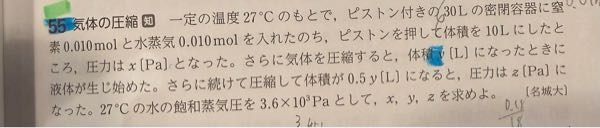 55 気体の圧縮 知 一定の温度27℃のもとで，ピストン付きの30Lの密閉容器に窒
素0.010molと水蒸気0.010molを入れたのち，ピストンを押して体積を10Lにしたと
ころ，圧力はx〔Pa〕となった。さらに気体を圧縮すると，体積y〔L〕になったときに
液体が生じ始めた。さらに続けて圧縮して体積が0.5y〔L〕になると，圧力はz〔Pa〕に
なった。27℃の水の飽和蒸気圧を3.6×10³Paとして，x，y，zを求めよ。 〔名城大〕